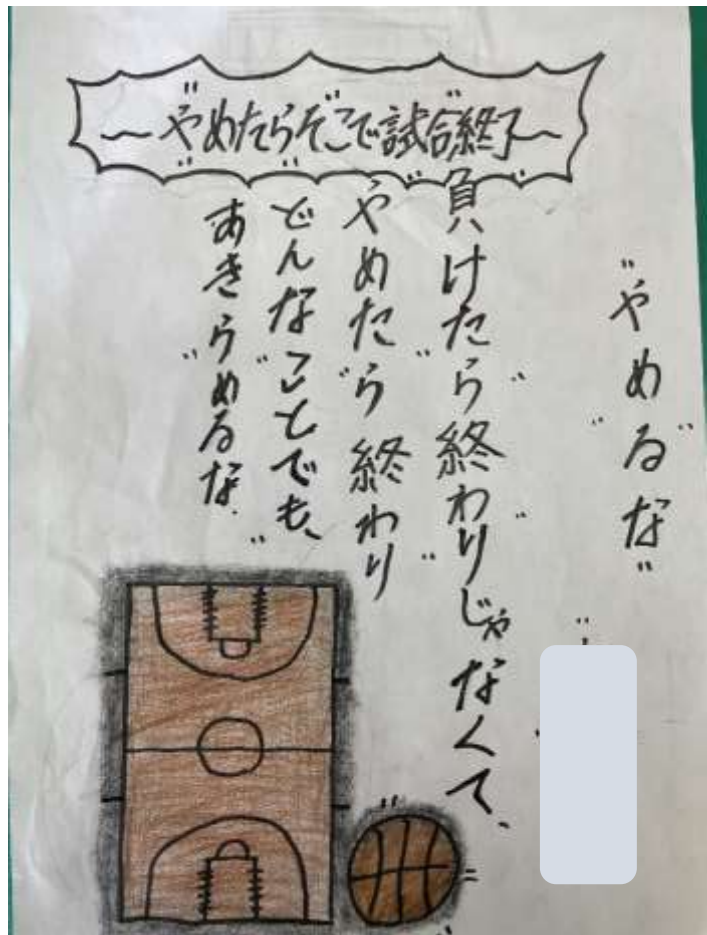 ～やめたらそこで試合終了～
"やめるな"
負けたら終わりじゃなくて、
やめたら終わり
どんなことでも、
あきらめるな.